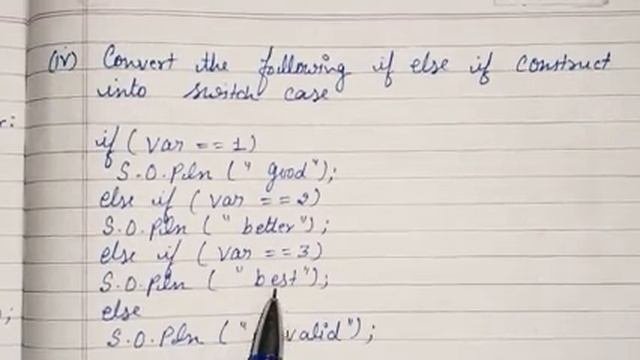 (iv) Convert the following if else if construct
into switch case
if ( var == 1)
S.O.Pln (" good");
else if ( var == 2)
S.O.Pln (" better");
else if ( var == 3)
S.O.Pln ( " best");
else
S.O.Pln (" valid");